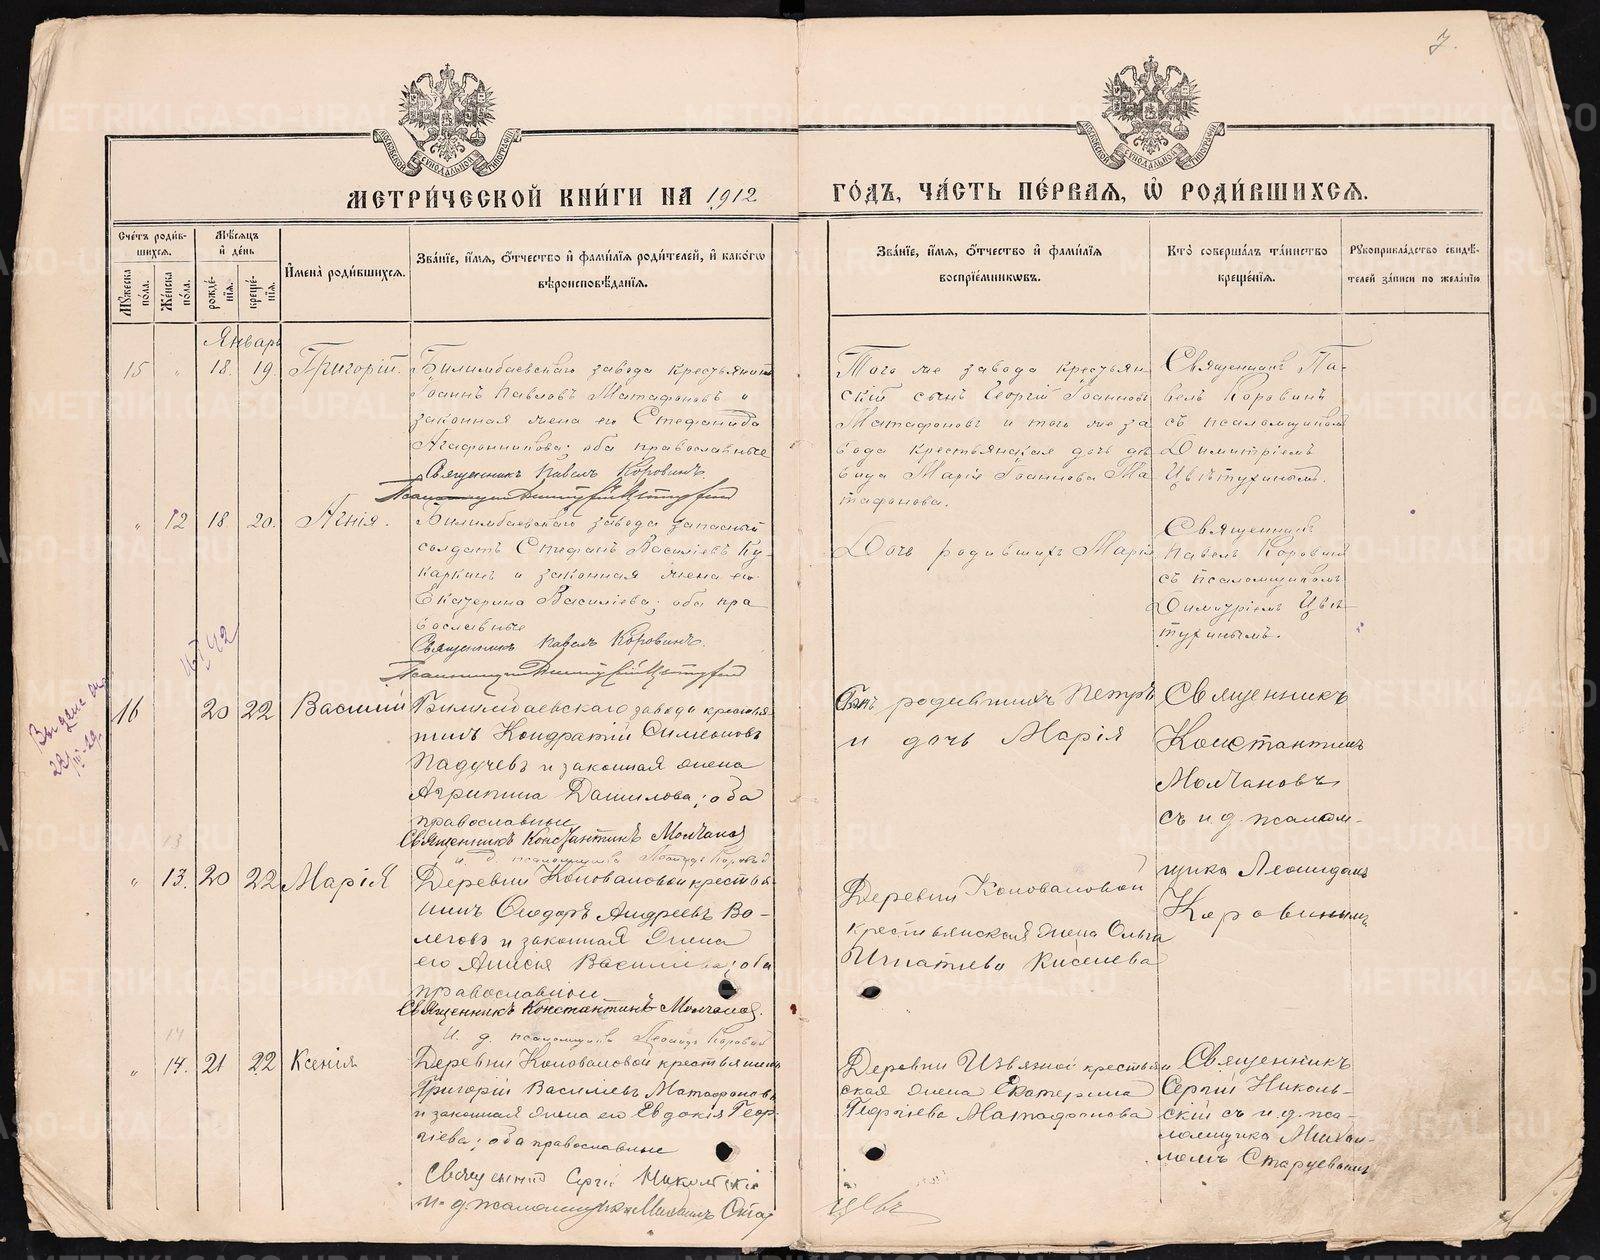 7.
МОСКОВСКОЙ СѴНОДАЛЬНОЙ ТИПОГРАФІИ
МОСКОВСКОЙ СѴНОДАЛЬНОЙ ТИПОГРАФІИ
МЕТРИ́ЧЕСКОЙ КНИ́ГИ НА 1912 ГО́ДЪ, ЧА́СТЬ ПЕ́РВАѦ, Ѡ҆ РОДИ́ВШИХСѦ.
Сче́тъ роди́в-
шихсѧ.
Мꙋ́жеска по́ла.
Же́нска по́ла.
Мѣ́сѧцъ
и҆ де́нь
рожде́-
нїѧ.
креще́-
нїѧ.
И҆мена̀ роди́вшихсѧ.
Зва́нїе, и҆́мѧ, ѻ҆́тчество и҆ фами́лїѧ роди́телей, и҆ како́гѡ
вѣроисповѣ́данїѧ.
Зва́нїе, и҆́мѧ, ѻ҆́тчество и҆ фами́лїѧ
воспрїе́мникѡвъ.
Кто̀ соверша́лъ та́инство
креще́нїѧ.
Рꙋкоприкла́дство свидѣ́-
телей за́писи по жела́нїю
Январь
15 " 18. 19. Григорій.
Билимбаевскаго завода крестьянинъ
Іоаннъ Павловъ Матафоновъ и
законная жена его Стефанида
Агафонникова; оба православные
Священникъ Павелъ Коровинъ.
Того же завода крестьян
скій сынъ Георгій Іоанновъ
Матафоновъ и того же за
вода крестьянская дочь дѣ
вица Марія Іоаннова Ма
тафонова.
Священникъ Па-
велъ Коровинъ
съ псаломщикомъ
Димитріемъ
Цвѣтухинымъ.
" 12 18 20. Агнія.
Билимбаевскаго завода запасный
солдатъ Стефанъ Василіевъ Ку-
каркинъ и законная жена его
Екатерина Василіева; оба пра
вославные
Священникъ Павелъ Коровинъ.
Дочь родившихъ Марія
Священникъ
Павелъ Коровинъ
съ псаломщикомъ
Димитріемъ Цвѣ-
тухинымъ.
16 20 22 Василій
Билимбаевскаго завода крестья
нинъ Кондратій Симеоновъ
Падучевъ и законная жена
Агрипина Данилова; оба
православные
Священникъ Константинъ Молчановъ
и. д. псаломщика Леонидъ Коровин
Сынъ родившихъ Петръ
и дочь Марія
Священникъ
Константинъ
Молчановъ
съ и д. псалом-
щика Леонидомъ
Коровинымъ
13
" 13. 20 22 Марія
Деревни Коноваловой крестья-
нинъ Ѳеодоръ Андреевъ Во-
леговъ и законная жена
его Анисія Василіева; оба
православные
Священникъ Константинъ Молчановъ.
И. д. псаломщика Леонидъ Коровин
Деревни Коноваловой
крестьянская жена Ольга
Игнатіева Киселева
14
" 14. 21 22 Ксенія
Деревни Коноваловой крестьянинъ
Григорій Василіевъ Матафоновъ
и законная жена его Евдокія Геор-
гіева; оба православные
Священникъ Сергій Никольскій
и. д. псаломщика Михаилъ Стар
цевъ
Деревни Извязной крестьян
ская жена Екатерина
Георгіева Матафонова
Священникъ
Сергій Николь-
скій съ и. д. пса-
ломщика Михаи-
ломъ Старцевымъ